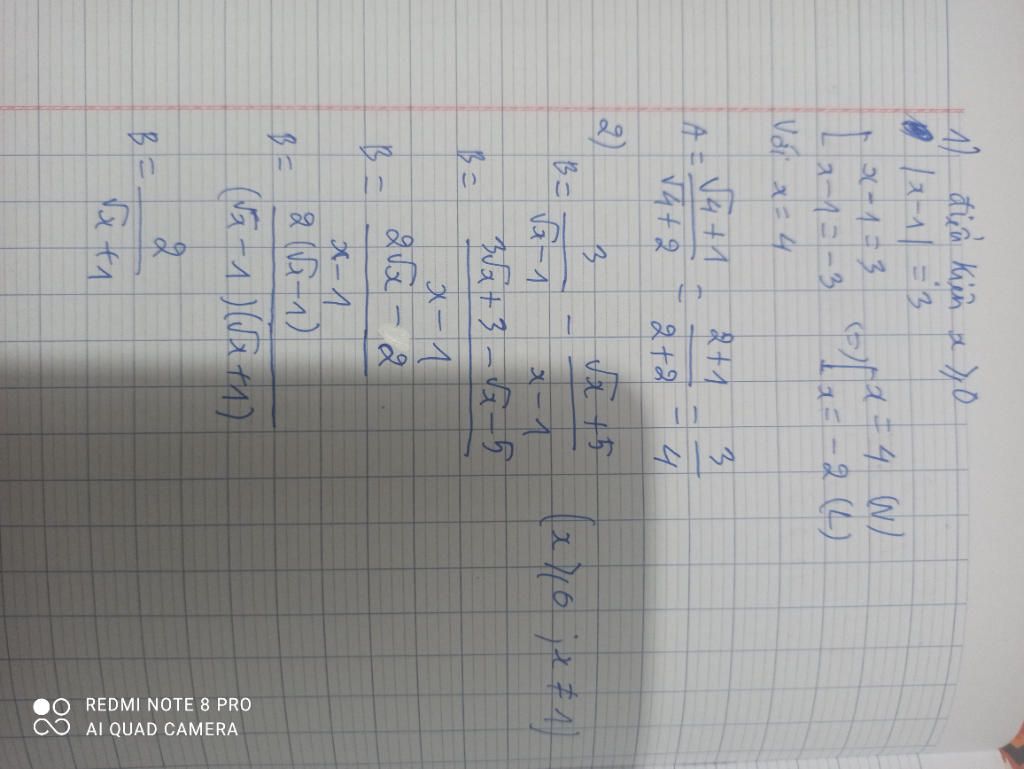 1) điều kiện x ⩾ 0
|x-1| = 3
[ x-1 = 3 (=) [ x = 4 (N)
[ x-1 = -3 [ x = -2 (L)
Với x = 4
A = (√4+1)/(√4+2) = (2+1)/(2+2) = 3/4
2)
B = 3/(√x-1) - (√x+5)/(x-1) (x⩾0; x≠1)
B = (3√x+3-√x-5)/(x-1)
B = (2√x-2)/(x-1)
B = 2(√x-1)/(√x-1)(√x+1)
B = 2/(√x+1)
REDMI NOTE 8 PRO
AI QUAD CAMERA